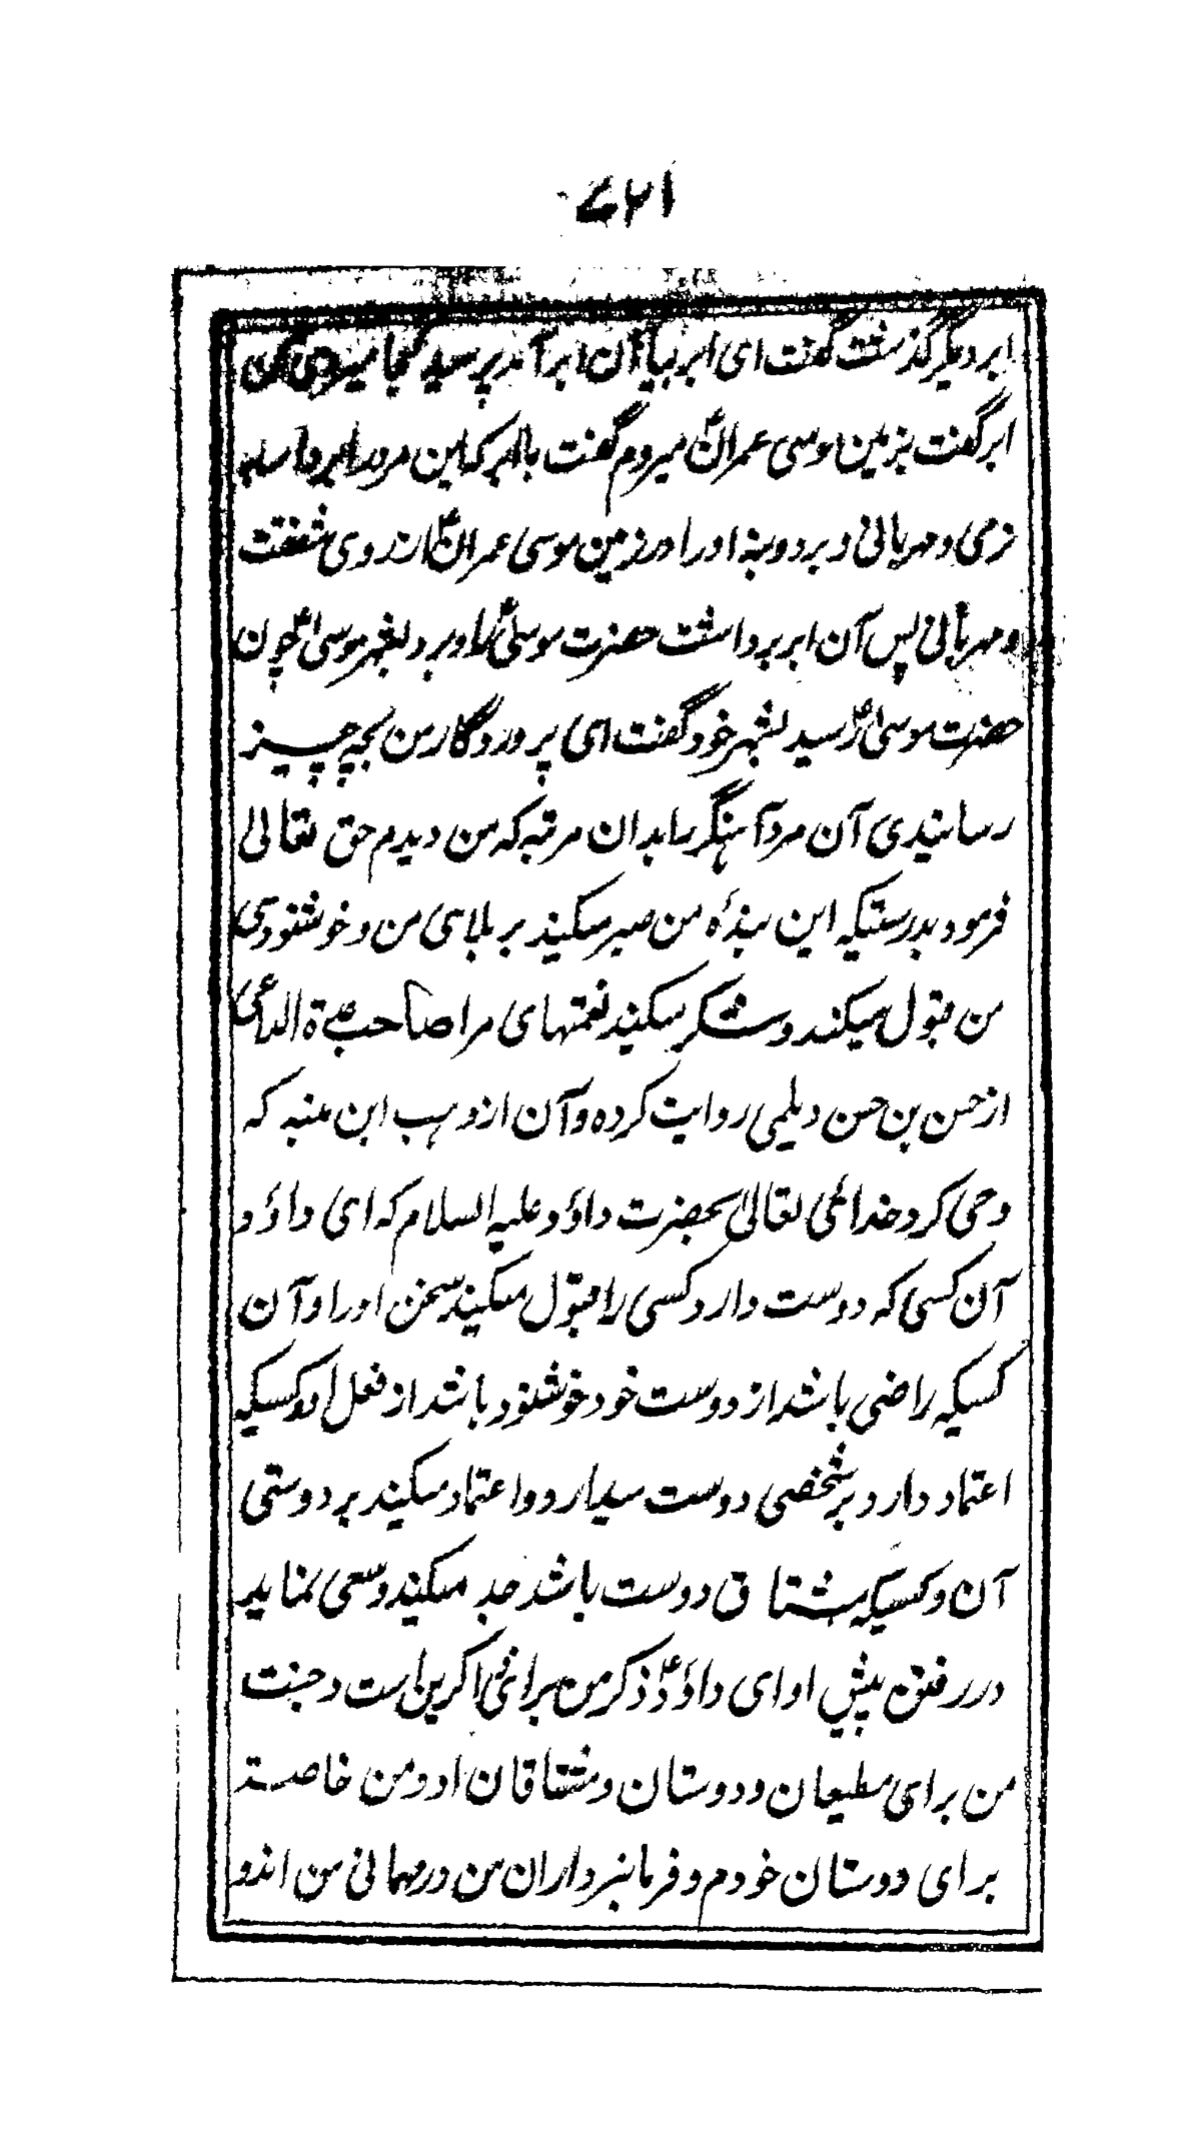 ۷۲۱
ابر دیگر گذشت گفت ای ابر بیا آن ابر آمد پرسید کجا میروی
ابر گفت بزمین موسی عمرانؑ میروم گفت با ابر که این مرد را بردار
نرمی و مهربانی و برد و بنه او را در زمین موسی عمرانؑ از روی شفقت
و مهربانی پس آن ابر برداشت حضرت موسیؑ را و برد بشهر موسیؑ چون
حضرت موسیؑ رسید بشهر خود گفت ای پروردگار من بچه چیز
رسانیدی آن مرد آهنگر را بدان مرتبه که من دیدم حق تعالی
فرمود بدرستیکه این بندهٔ من صبر میکند بر بلاهی من و خوشنودی
من قبول میکند و شکر میکند نعمتهای مرا صاحب عدة الداعی
از حسن بن حسن دیلمی روایت کرده و آن از وهب ابن منبه که
وحی کرد خدائی تعالیٰ بحضرت داؤد علیه السلام که ای داؤد
آن کسی که دوست دارد کسی را قبول میکند سخن او را و آن
کسیکه راضی باشد از دوست خود خوشنود باشد از فعل او و کسیکه
اعتماد دارد بر شخصی دوست میدارد و اعتماد میکند بر دوستی
آن و کسیکه مشتاق دوست باشد جد میکند و سعی نماید
در رفتن پیش او ای داؤدؑ ذکر من برائی ذاکرین است و جنت
من برای مطیعان و دوستان و مشتاقان او و من خاصـة
برای دوستان خودم و فرمانبرداران من در مهمانی من اند و